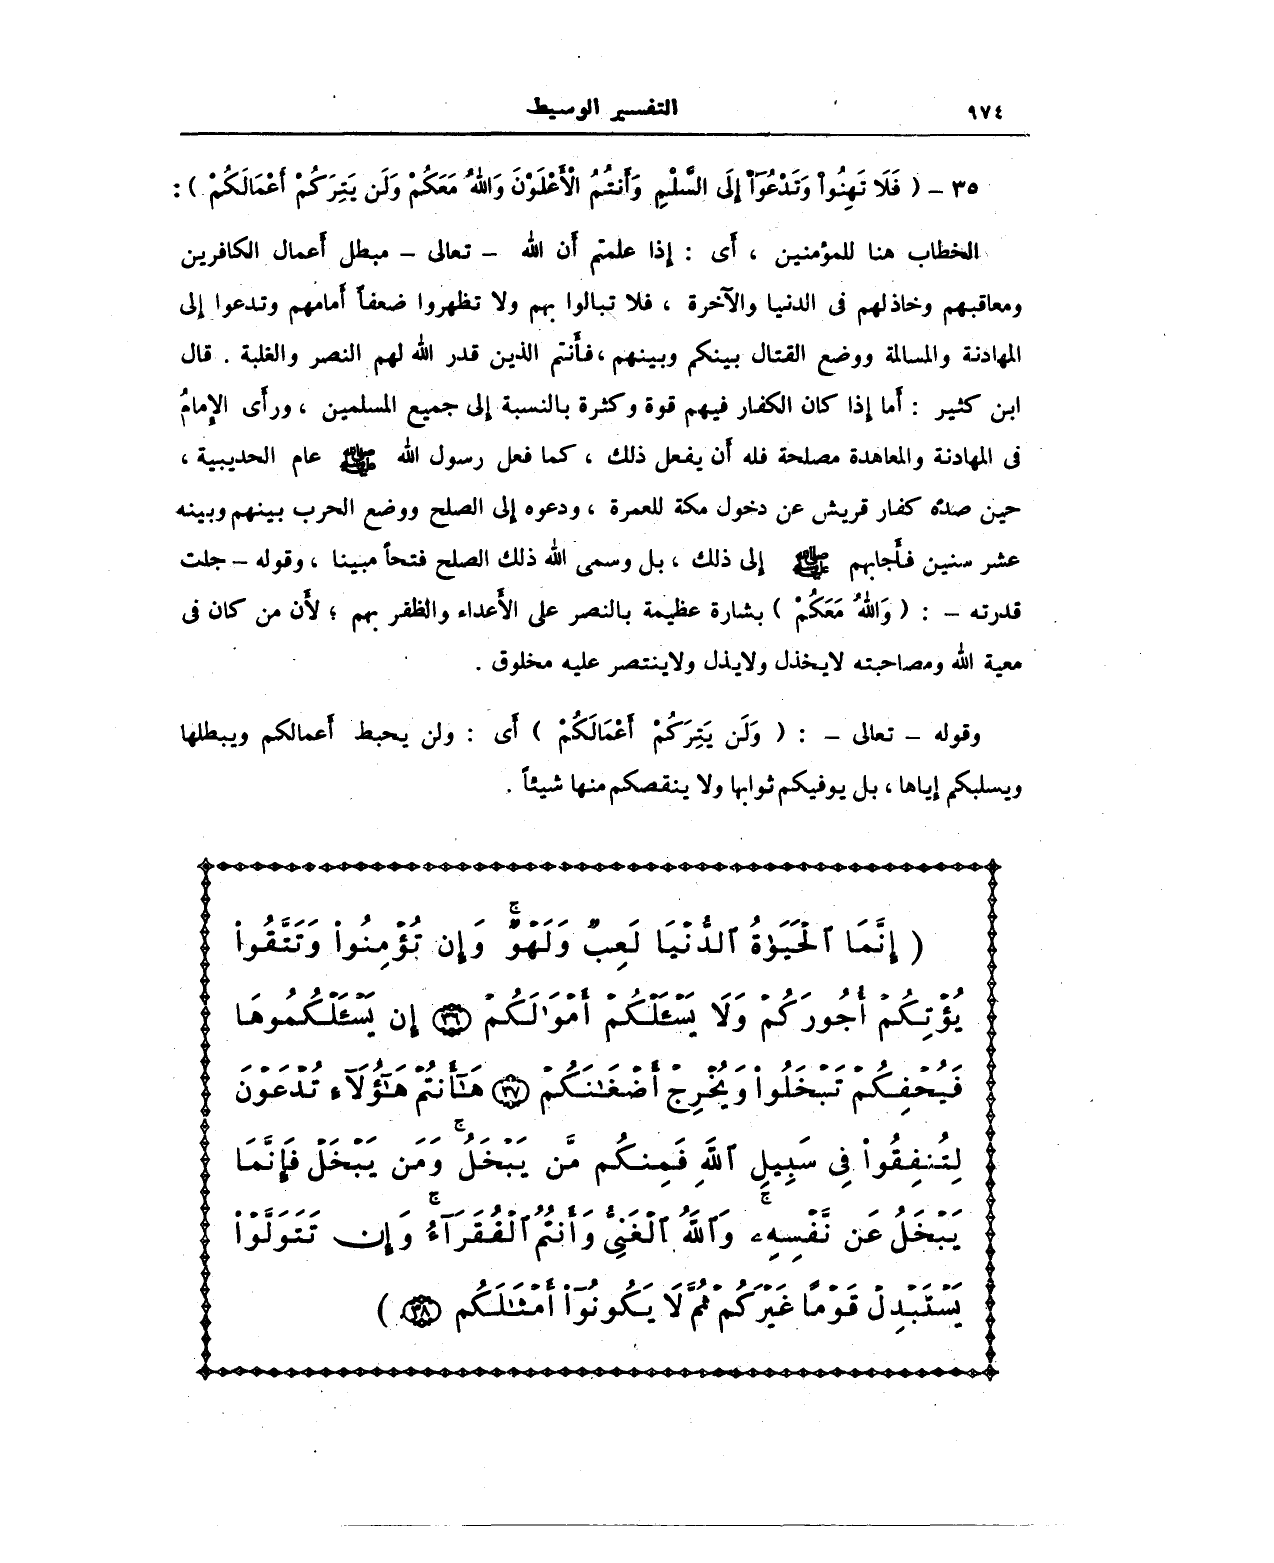 ٩٧٤
التفسير الوسيط
٣٥ - ( فَلَا تَهِنُواْ وَتَدْعُوٓاْ إِلَى السَّلْمِ وَأَنتُمُ الْأَعْلَوْنَ وَاللهُ مَعَكُمْ وَلَن يَتِرَكُمْ أَعْمَالَكُمْ ) :
الخطاب هنا للمؤمنين ، أى : إذا علمتم أن الله - تعالى - مبطل أعمال الكافرين
ومعاقبهم وخاذلهم فى الدنيا والآخرة ، فلا تبالوا بهم ولا تظهروا ضعفاً أمامهم وتدعوا إلى
المهادنة والمسالمة ووضع القتال بينكم وبينهم ، فأنتم الذين قدر الله لهم النصر والغلبة . قال
ابن كثير : أما إذا كان الكفار فيهم قوة وكثرة بالنسبة إلى جميع المسلمين ، ورأى الإمامُ
فى المهادنة والمعاهدة مصلحة فله أن يفعل ذلك ، كما فعل رسول الله ﷺ عام الحديبية ،
حين صدّه كفار قريش عن دخول مكة للعمرة ، ودعوه إلى الصلح ووضع الحرب بينهم وبينه
عشر سنين فأجابهم ﷺ إلى ذلك ، بل وسمى الله ذلك الصلح فتحاً مبينا ، وقوله - جلت
قدرته - : ( وَاللهُ مَعَكُمْ ) بشارة عظيمة بالنصر على الأعداء والظفر بهم ؛ لأن من كان فى
معية الله ومصاحبته لايخذل ولايذل ولاينتصر عليه مخلوق .
وقوله - تعالى - : ( وَلَن يَتِرَكُمْ أَعْمَالَكُمْ ) أى : ولن يحبط أعمالكم ويبطلها
ويسلبكم إياها ، بل يوفيكم ثوابها ولا ينقصكم منها شيئاً .
( إِنَّمَا ٱلْحَيَوٰةُ ٱلدُّنْيَا لَعِبٌ وَلَهْوٌ ۚ وَإِن تُؤْمِنُواْ وَتَتَّقُواْ
يُؤْتِكُمْ أُجُورَكُمْ وَلَا يَسْـَٔلْكُمْ أَمْوَٰلَكُمْ ﴿٣٦﴾ إِن يَسْـَٔلْكُمُوهَا
فَيُحْفِكُمْ تَبْخَلُواْ وَيُخْرِجْ أَضْغَـٰنَكُمْ ﴿٣٧﴾ هَـٰٓأَنتُمْ هَـٰٓؤُلَآءِ تُدْعَوْنَ
لِتُنفِقُواْ فِى سَبِيلِ ٱللَّهِ فَمِنكُم مَّن يَبْخَلُ ۖ وَمَن يَبْخَلْ فَإِنَّمَا
يَبْخَلُ عَن نَّفْسِهِۦ ۚ وَٱللَّهُ ٱلْغَنِىُّ وَأَنتُمُ ٱلْفُقَرَآءُ ۚ وَإِن تَتَوَلَّوْاْ
يَسْتَبْدِلْ قَوْمًا غَيْرَكُمْ ثُمَّ لَا يَكُونُوٓاْ أَمْثَـٰلَكُم ﴿٣٨﴾ )